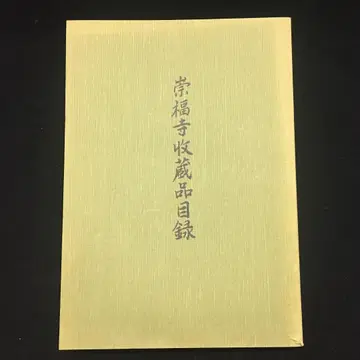 崇福寺收蔵品目録